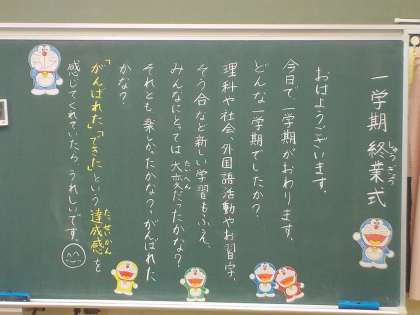 一学期 終業式
しゅうぎょう
おはようございます。
今日で一学期がおわります。
どんな一学期でしたか？
理科や社会、外国語活動やお習字、
そう合など新しい学習もふえ、
みんなにとっては大変だったかな？
たいへん
それとも楽しかったかな？がんばれた
かな？
「がんばれた」「できた」という達成感を
たっせいかん
感じてくれていたらうれしいです。